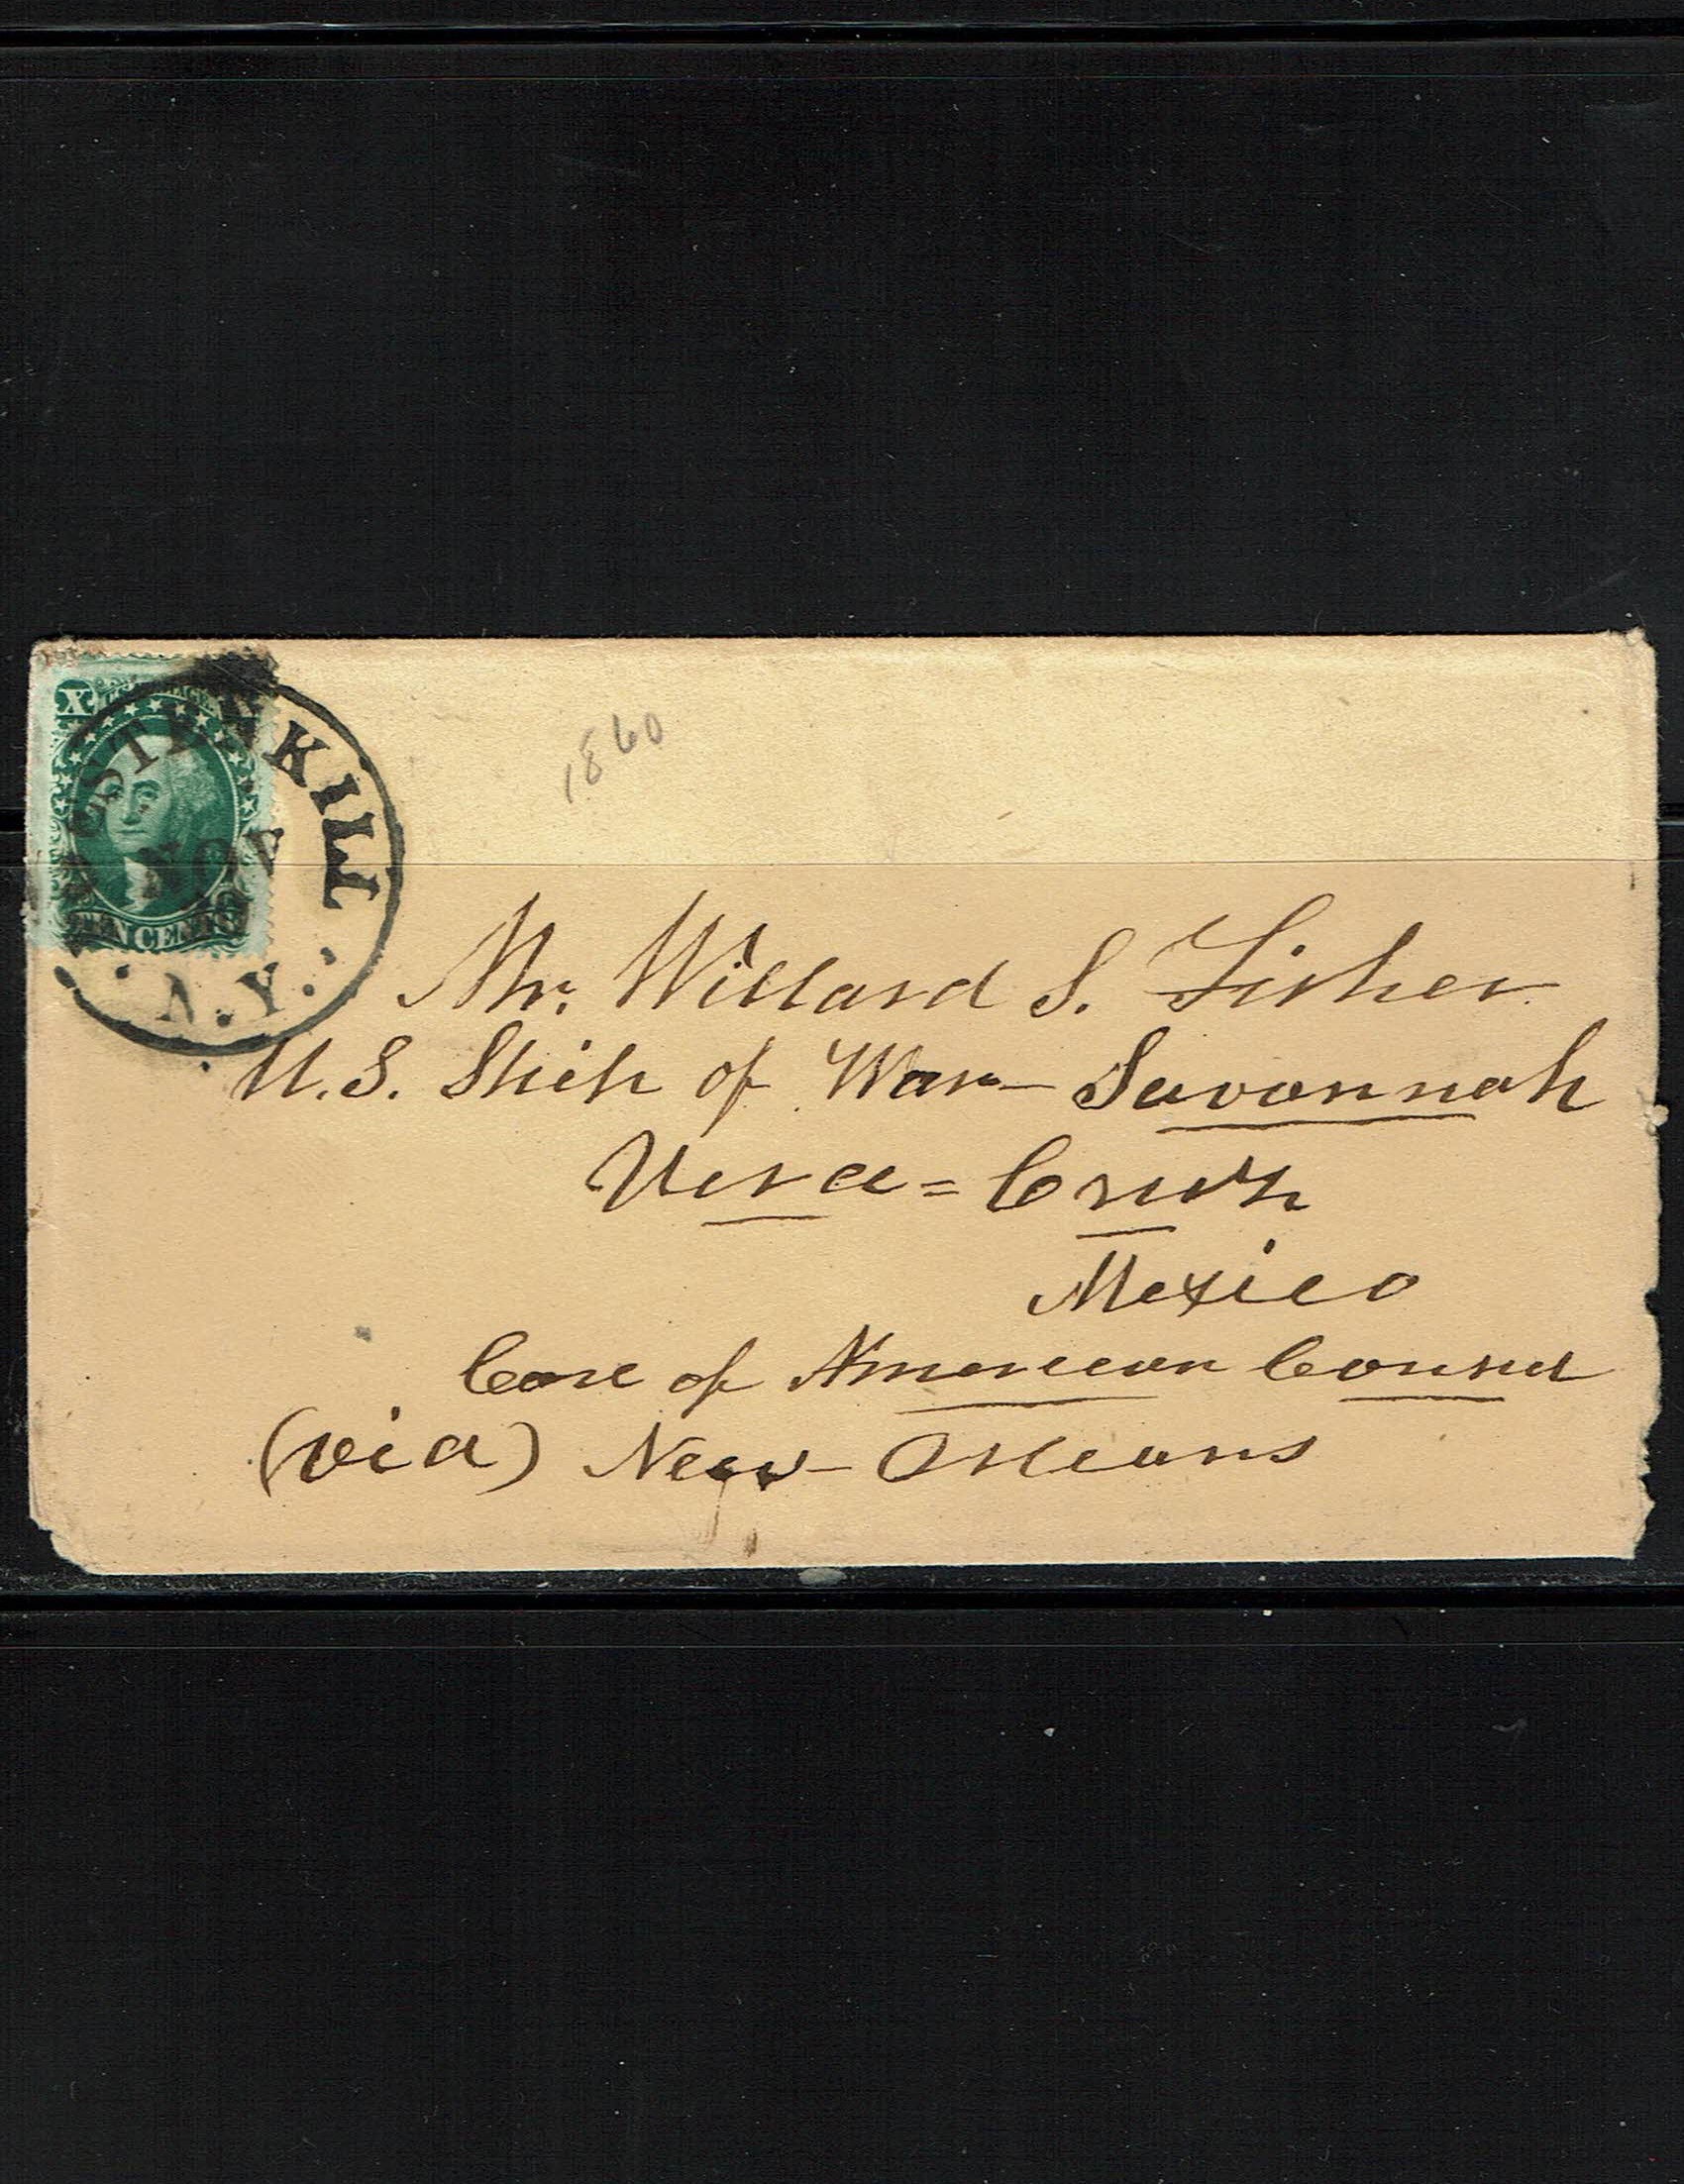 X
TEN CENTS
NOV
N.Y.
1860
Mr. Willard S. Fisher
U.S. Ship of War - Savannah
Vera = Cruz
Mexico
Care of American Consul
(via) New-Orleans